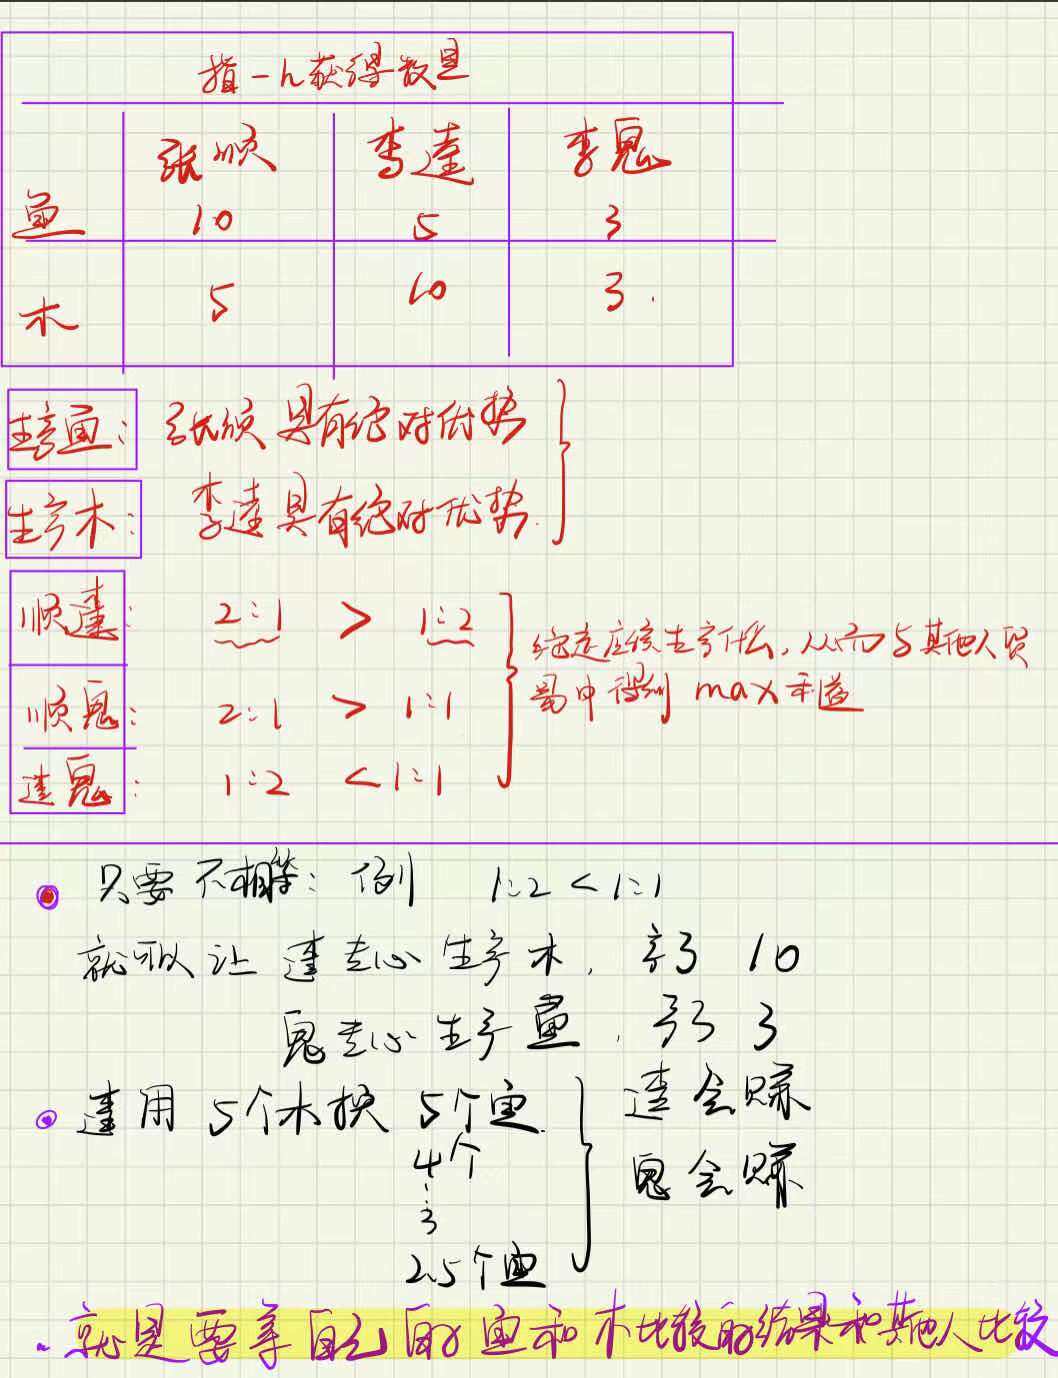 指一h获得数量
张顺 李逵 李鬼
鱼 10 5 3
木 5 10 3.
生产鱼: 张顺 具有绝对优势
生产木: 李逵具有绝对优势.
顺逵: 2:1 > 1:2
顺鬼: 2:1 > 1:1
逵鬼: 1:2 < 1:1
应该生产什么,从而与其他人贸
易中得到 max 利益
只要不相等: 例 1:2 < 1:1
就可以让 逵 专心 生产木, 产了 10
鬼 专心 生产 鱼, 产了 3
逵用 5个木换 5个鱼.
4个
3
2.5个鱼
逵会赚
鬼会赚
就是要拿自己的鱼和木比较的结果和其他人比较